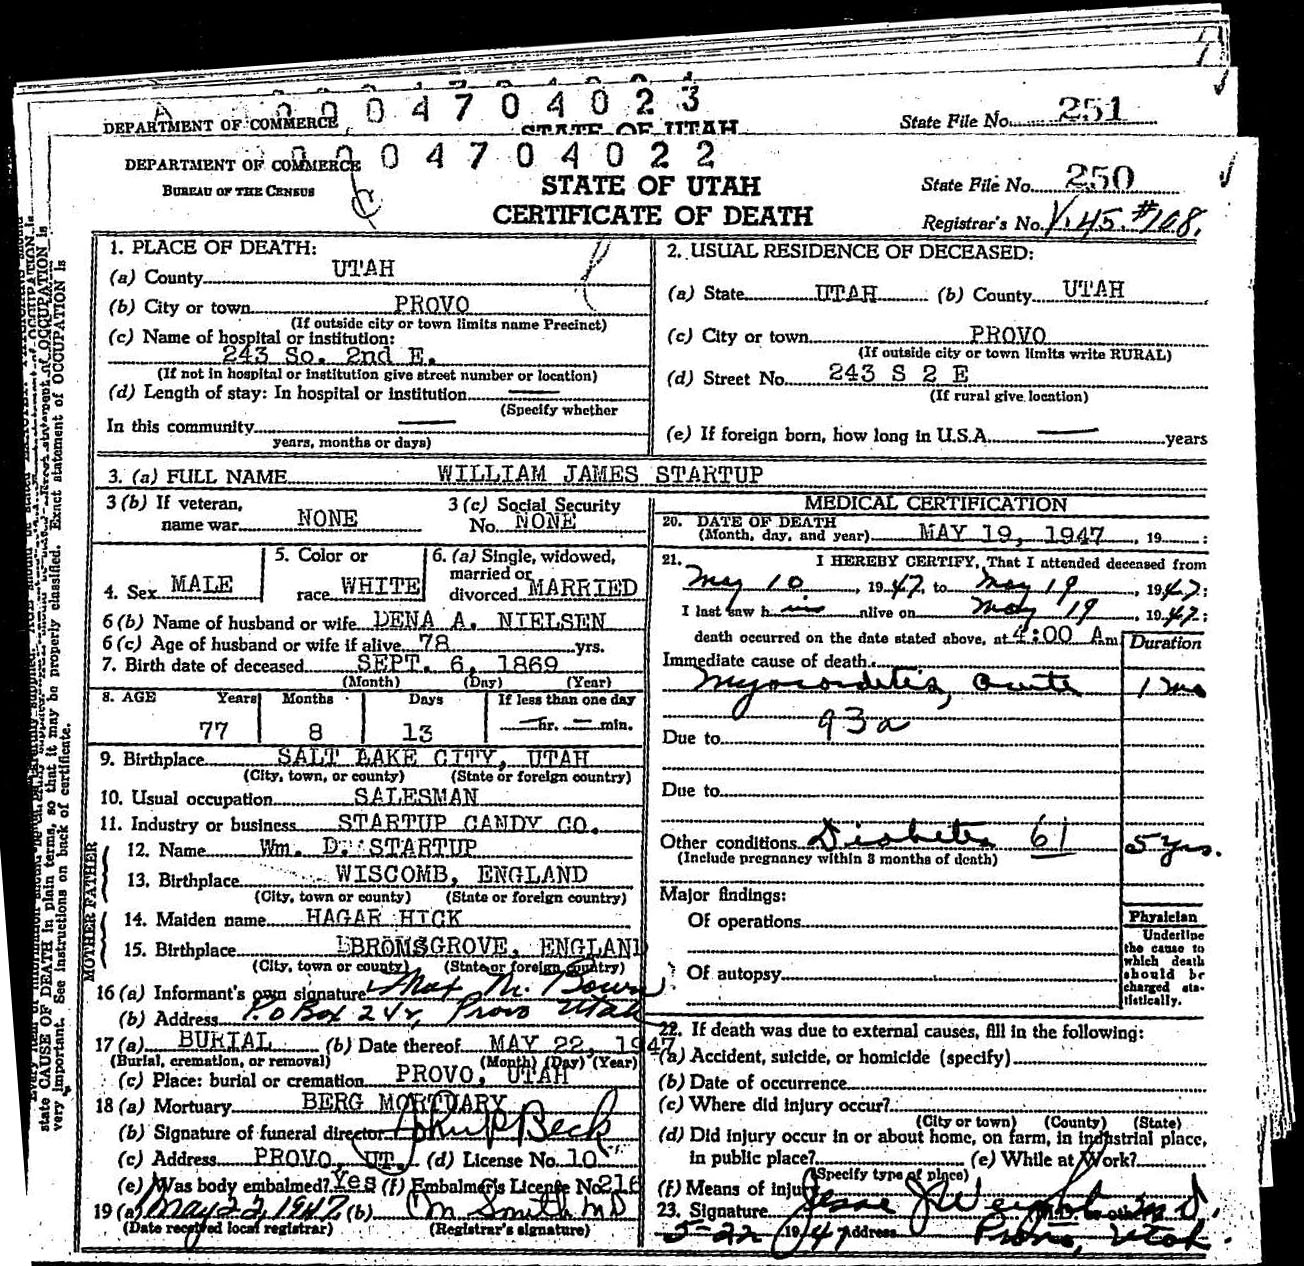 0004704023
DEPARTMENT OF COMMERCE
STATE OF UTAH
State File No. 251
0004704022
DEPARTMENT OF COMMERCE
BUREAU OF THE CENSUS
STATE OF UTAH
CERTIFICATE OF DEATH
State File No. 250
Registrar's No. V.45.#108.
1. PLACE OF DEATH:
(a) County UTAH
(b) City or town PROVO
(If outside city or town limits name Precinct)
(c) Name of hospital or institution:
243 So. 2nd E.
(If not in hospital or institution give street number or location)
(d) Length of stay: In hospital or institution —
(Specify whether
In this community —
years, months or days)
2. USUAL RESIDENCE OF DECEASED:
(a) State UTAH (b) County UTAH
(c) City or town PROVO
(If outside city or town limits write RURAL)
(d) Street No. 243 S 2 E
(If rural give location)
(e) If foreign born, how long in U.S.A. — years
3. (a) FULL NAME WILLIAM JAMES STARTUP
3 (b) If veteran, name war NONE
3 (c) Social Security No. NONE
4. Sex MALE
5. Color or race WHITE
6. (a) Single, widowed, married or divorced MARRIED
6 (b) Name of husband or wife DENA A. NIELSEN
6 (c) Age of husband or wife if alive 78 yrs.
7. Birth date of deceased SEPT. 6, 1869
(Month) (Day) (Year)
8. AGE Years Months Days If less than one day
77 8 13 — hr. — min.
9. Birthplace SALT LAKE CITY, UTAH
(City, town, or county) (State or foreign country)
10. Usual occupation SALESMAN
11. Industry or business STARTUP CANDY CO.
FATHER
12. Name Wm. D. STARTUP
13. Birthplace WISCOMB, ENGLAND
(City, town or county) (State or foreign country)
MOTHER
14. Maiden name HAGAR HICK
15. Birthplace BROMSGROVE, ENGLAND
(City, town or county) (State or foreign country)
16 (a) Informant's own signature Max M. Bown
(b) Address P.O Box 242, Provo Utah
17 (a) BURIAL (b) Date thereof MAY 22, 1947
(Burial, cremation, or removal) (Month) (Day) (Year)
(c) Place: burial or cremation PROVO, UTAH
18 (a) Mortuary BERG MORTUARY
(b) Signature of funeral director John P Beck
(c) Address PROVO, UT. (d) License No. 10
(e) Was body embalmed? Yes (f) Embalmer's License No. 216
19 (a) May 22, 1947 (b) Smith MD
(Date received local registrar) (Registrar's signature)
MEDICAL CERTIFICATION
20. DATE OF DEATH
(Month, day, and year) MAY 19, 1947, 19 :
21. I HEREBY CERTIFY, That I attended deceased from
May 10, 1947, to May 19, 1947;
I last saw him alive on May 19, 1947;
death occurred on the date stated above, at 4:00 Am
Duration
Immediate cause of death
Myocarditis, Acute 1 mo
93a
Due to
Due to
Other conditions Diabetes 61 5 yrs.
(Include pregnancy within 3 months of death)
Major findings:
Of operations
Of autopsy
Physician
Underline
the cause to
which death
should be
charged sta-
tistically.
22. If death was due to external causes, fill in the following:
(a) Accident, suicide, or homicide (specify)
(b) Date of occurrence
(c) Where did injury occur?
(City or town) (County) (State)
(d) Did injury occur in or about home, on farm, in industrial place,
in public place? (e) While at Work?
(Specify type of place)
(f) Means of injury
23. Signature Jesse J Weight M D.
5-22 1947 Address Provo, Utah.
state CAUSE OF DEATH in plain terms, so that it may be properly classified. Exact statement of OCCUPATION is
very important. See instructions on back of certificate.